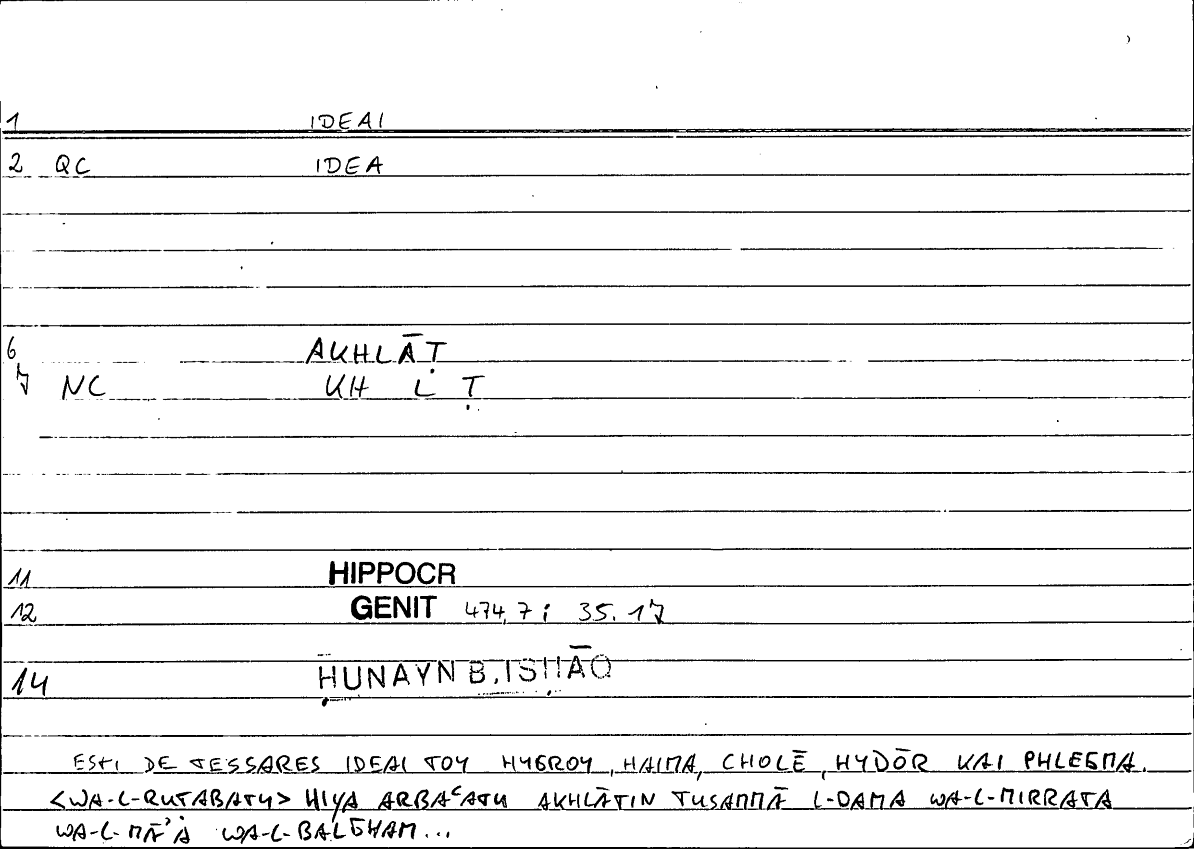 1 IDEAI
2 QC IDEA
6 AKHLĀṬ
7 NC KH L Ṭ
11 HIPPOCR
12 GENIT 474,7 ; 35.17
14 ḤUNAYN B. ISḤĀQ
ESTI DE TESSARES IDEAI TOY HYGROY, HAIMA, CHOLĒ, HYDŌR KAI PHLEGMA.
<WA-L-RUTABATU> HIYA ARBAᶜATU AKHLĀTIN TUSAMMĀ L-DAMA WA-L-MIRRATA
WA-L-MĀʾA WA-L-BALGHAM...